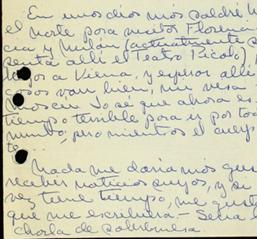 En unos días más saldré h
el norte para visitar Florenc
cia y Milán (actualmente s
senta allí el Teatro Piccolo),
luego a Viena, y esperar allí
cosas van bien, mi visa
Moscú. Yo sé que ahora es
tiempo terrible para ir por to
mundo, pero mientras el cuerp
te
Nada me daría más gus
recibir noticias suyas, y si
vez tiene tiempo, me gust
que me escribiera — Sería l
charla de sobremesa.